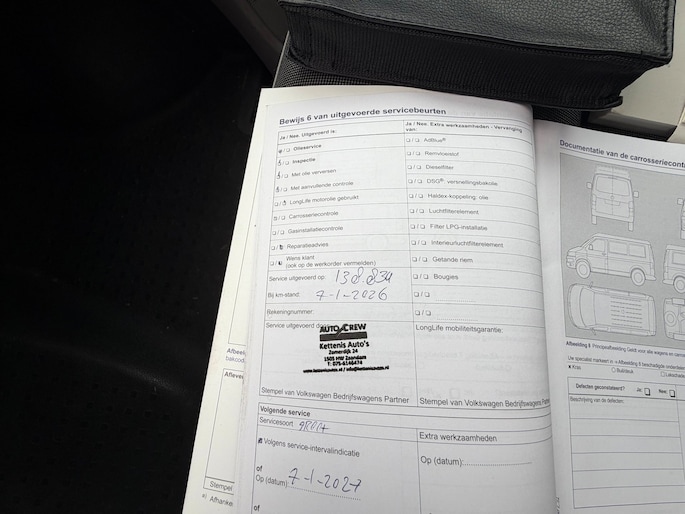 Bewijs 6 van uitgevoerde servicebeurten
Ja / Nee: Uitgevoerd is:
Olieservice
Inspectie
Met olie verversen
Met aanvullende controle
LongLife motorolie gebruikt
Carrosseriecontrole
Gasinstallatiecontrole
Reparatieadvies
Wens klant
(ook op de werkorder vermelden)
Service uitgevoerd op: 138.834
Bij km-stand: 7-1-2026
Rekeningnummer:
Service uitgevoerd door
AUTO CREW
Kettenis Auto's
Zomerdijk 24
1505 HW Zaandam
T: 075-6146474
www.kettenisautos.nl / info@kettenisautos.nl
Stempel van Volkswagen Bedrijfswagens Partner
Volgende service
Servicesoort
Volgens service-intervalindicatie
of
Op (datum): 7-1-2027
of
Ja / Nee: Extra werkzaamheden - Vervanging
van:
AdBlue®
Remvloeistof
Dieselfilter
DSG®: versnellingsbakolie
Haldex-koppeling: olie
Luchtfilterelement
Filter LPG-installatie
Interieurluchtfilterelement
Getande riem
Bougies
LongLife mobiliteitsgarantie:
Stempel van Volkswagen Bedrijfswagens
Extra werkzaamheden
Op (datum):
Documentatie van de carrosseriecontr
Afbeelding 6 Principeafbeelding Geldt voor alle wagens en carross
Uw specialist markeert in
Kras
Buil/deuk
Lakschade
Defecten geconstateerd? Ja: Nee:
Beschrijving van de defecten:
Afbeel
bakcod
Afleve
Stempel
a) Afhanke